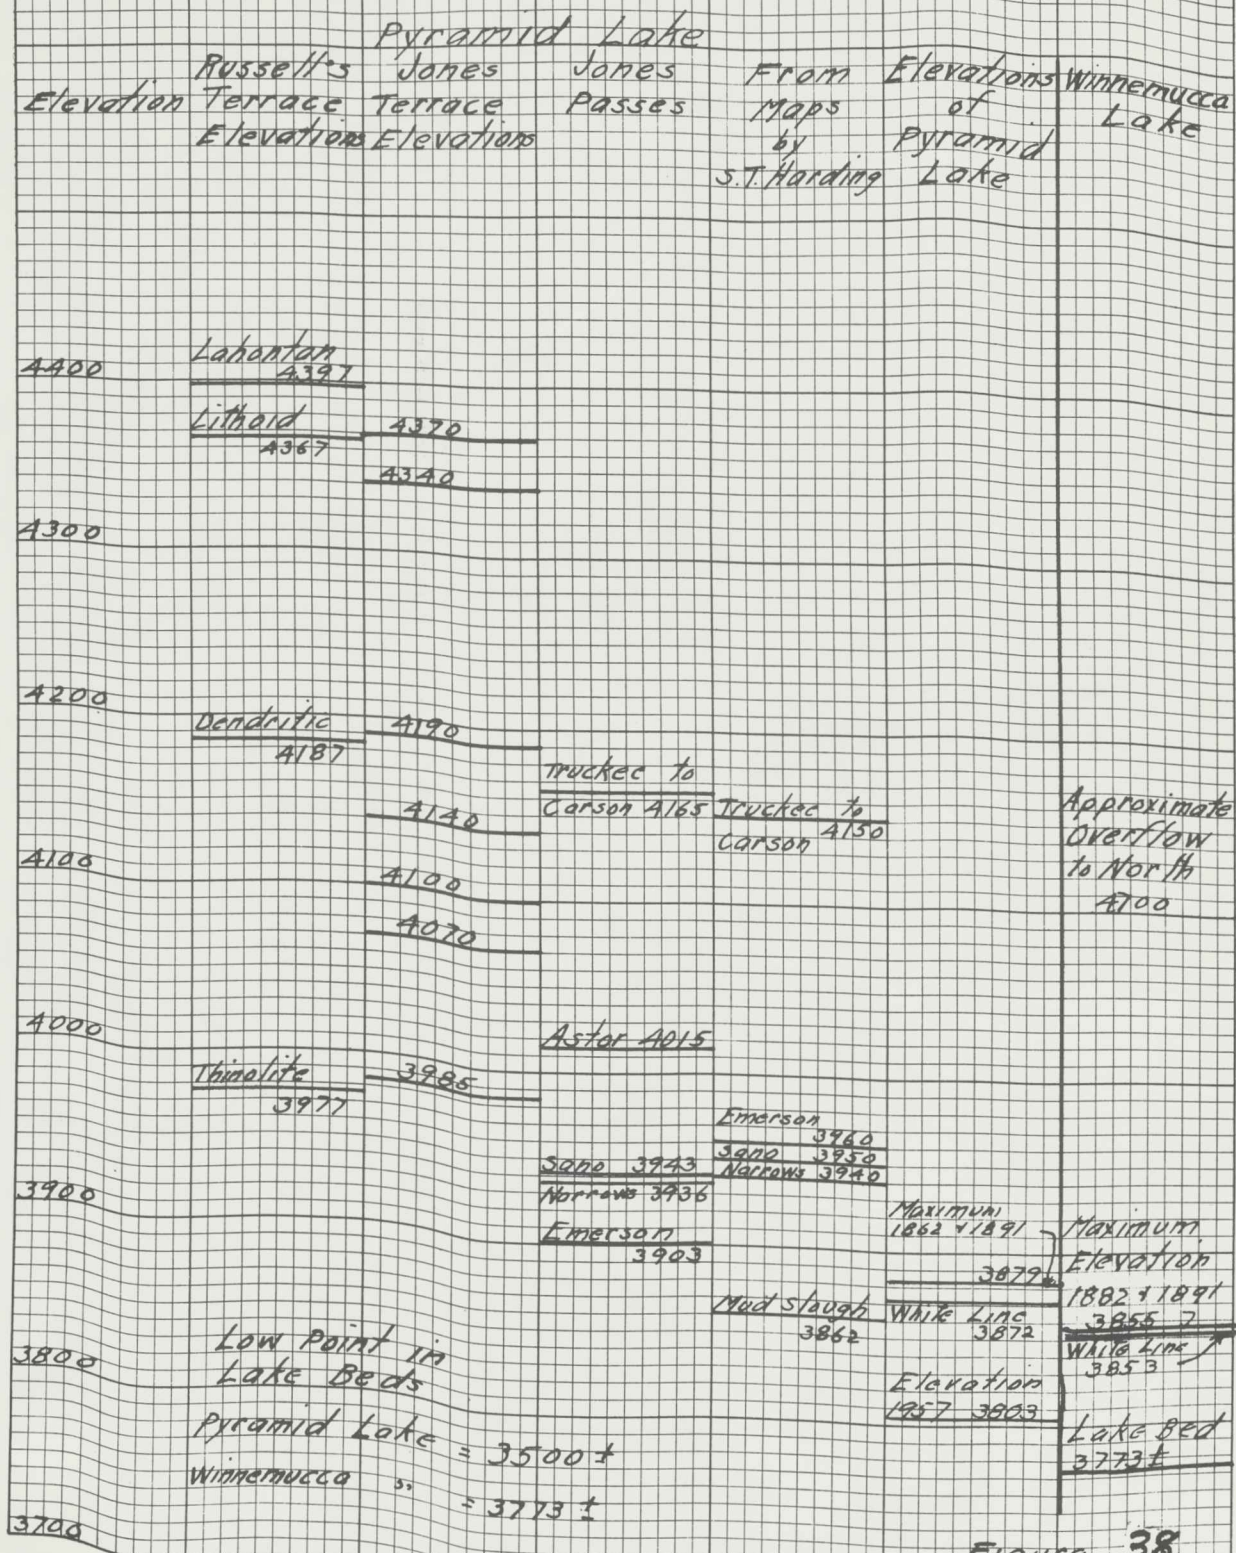 Pyramid Lake
Elevation
Russell's
Terrace
Elevations
Jones
Terrace
Elevations
Jones
Passes
From
Maps
by
S.T. Harding
Elevations
of
Pyramid
Lake
Winnemucca
Lake
4400
4300
4200
4100
4000
3900
3800
3700
Lahontan
4397
Lithoid
4367
Dendritic
4187
Thinolite
3977
4370
4340
4190
4140
4100
4070
3985
Truckee to
Carson 4165
Astor 4015
Sano 3943
Narrows 3936
Emerson
3903
Truckee to
4150
Carson
Emerson
3960
Sano 3950
Narrows 3940
Mud Slough
3862
Maximum
1862 & 1891
3879
White Line
3872
Elevation
1957 3803
Approximate
Overflow
to North
4100
Maximum
Elevation
1882 & 1891
3855 ?
White Line
3853
Lake Bed
3773 ±
Low Point in
Lake Beds
Pyramid Lake = 3500 ±
Winnemucca " = 3773 ±
Figure 38